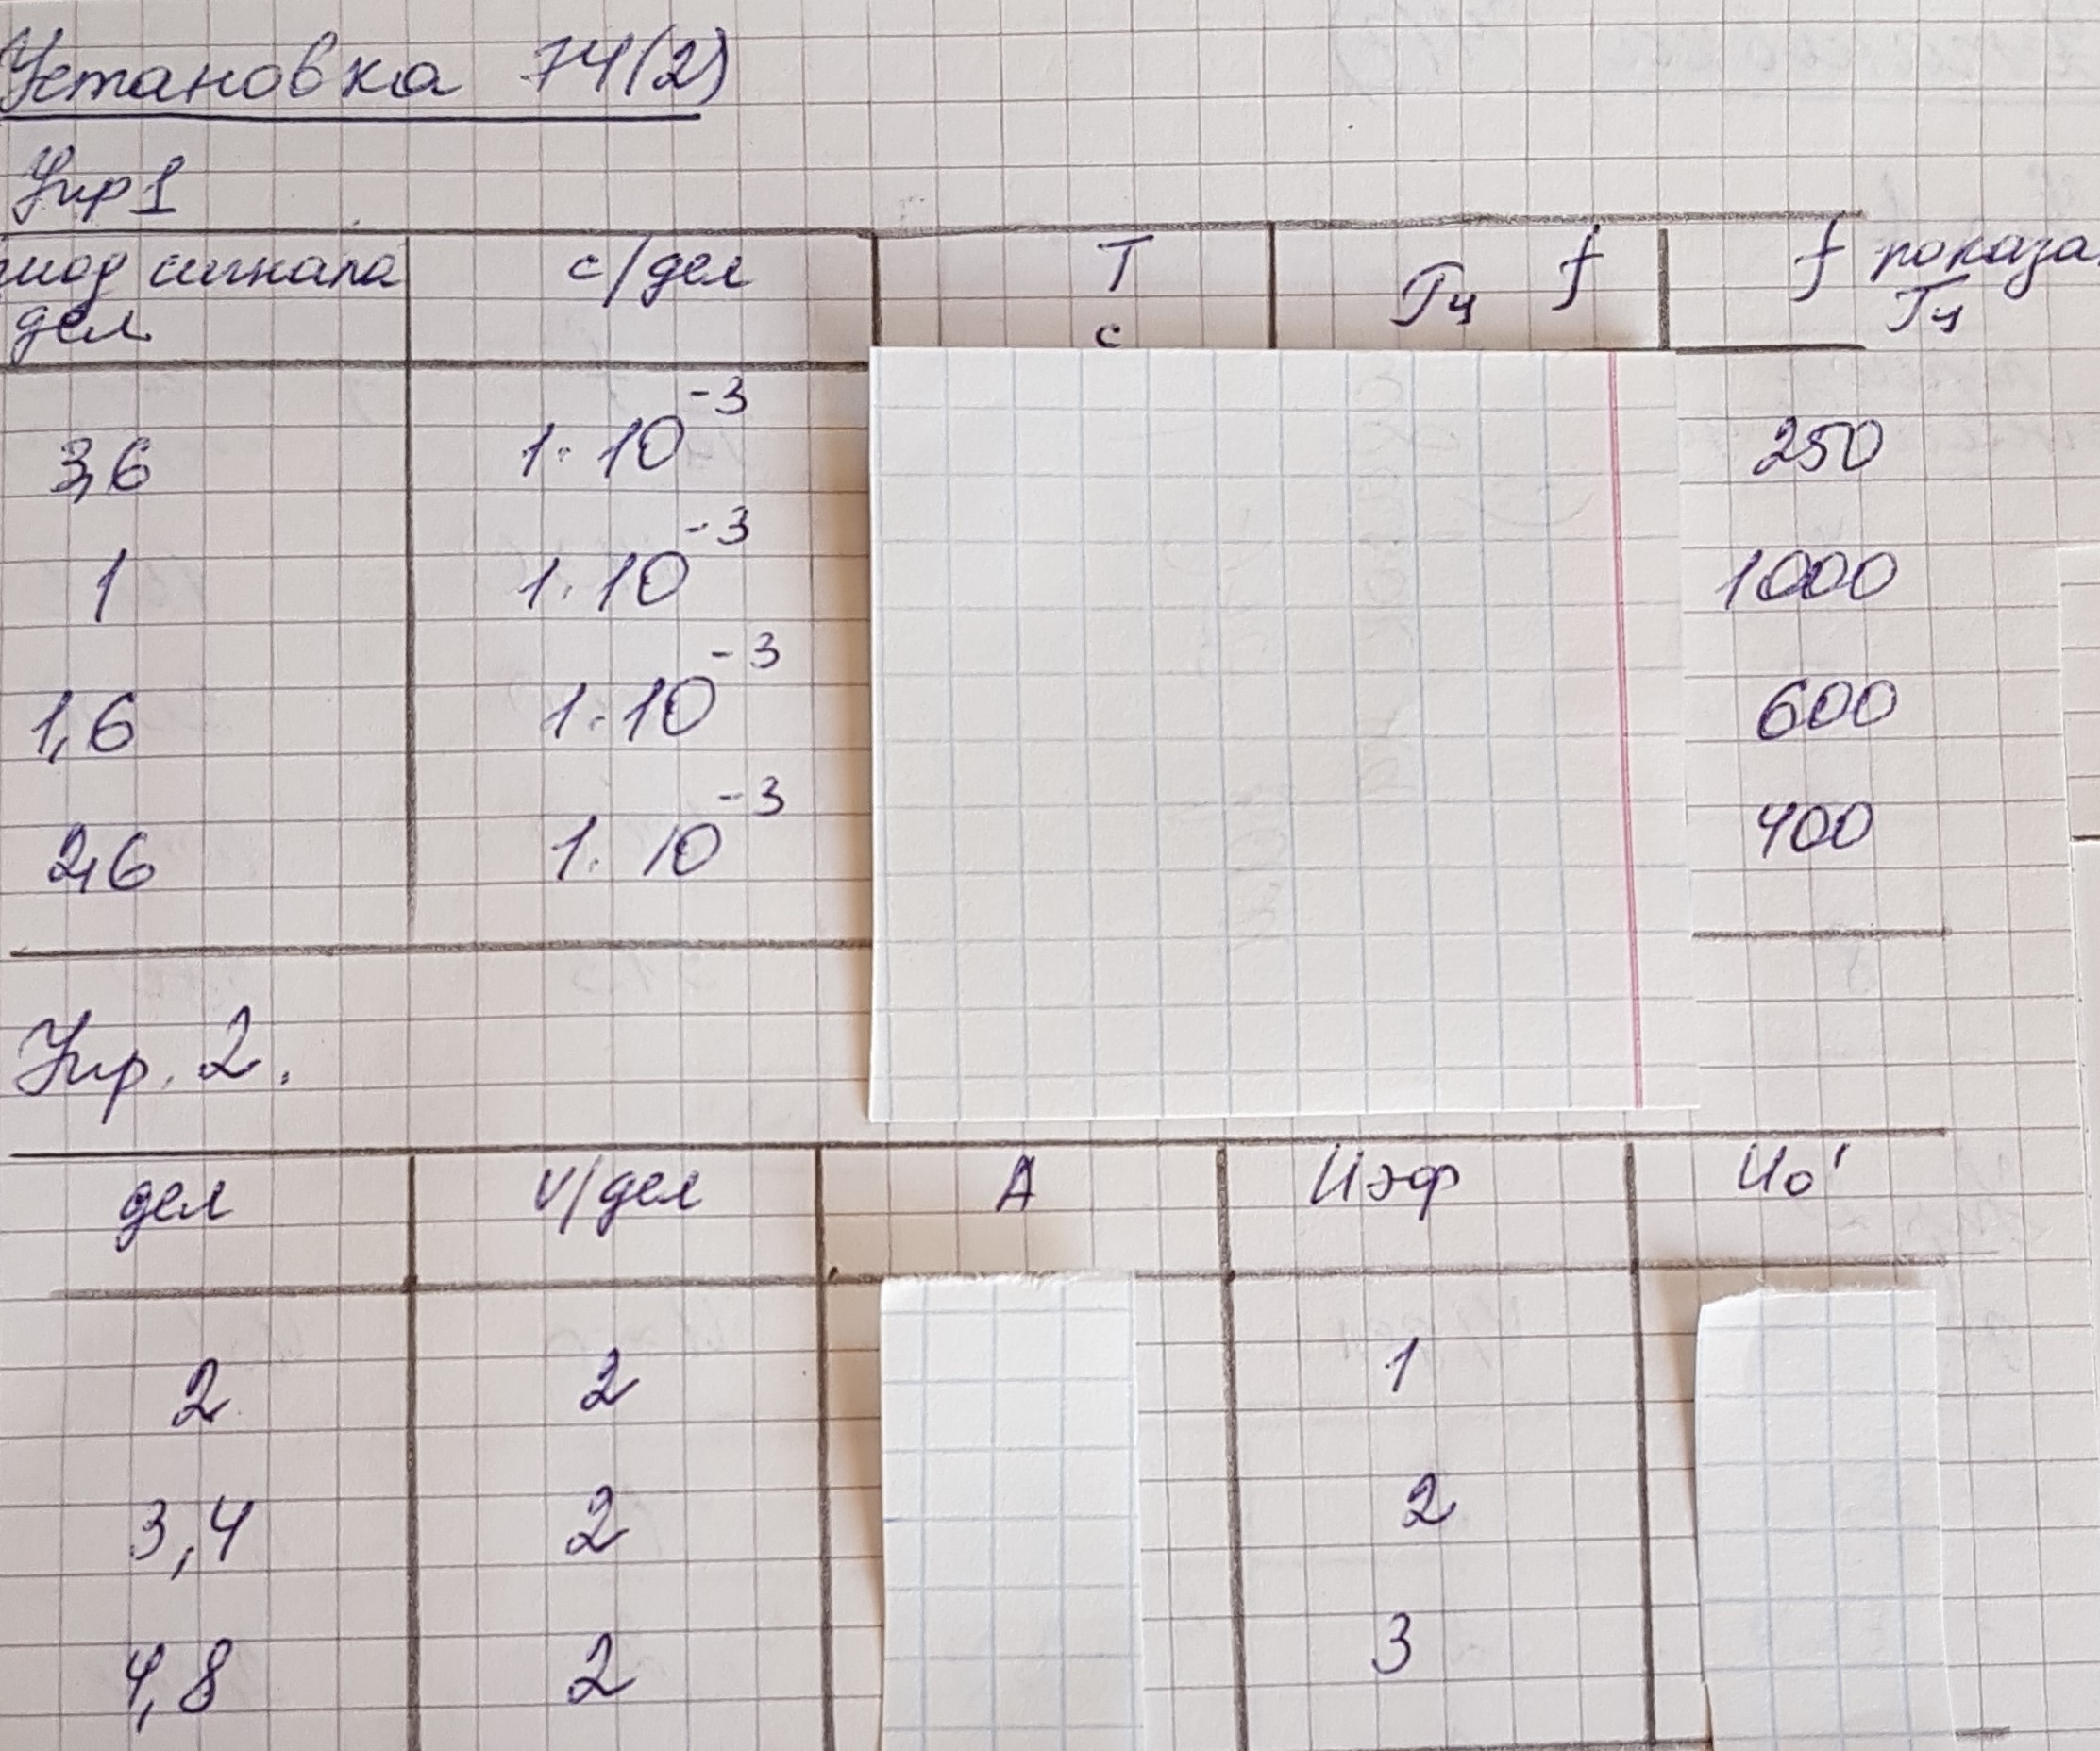 Установка 74(2)
Упр 1
иод сигнала с/дел T Гц f f показа
дел с Гц
3,6 1·10⁻³ 250
1 1·10⁻³ 1000
1,6 1·10⁻³ 600
2,6 1·10⁻³ 400
Упр. 2.
дел V/дел A Uэф U₀'
2 2 1
3,4 2 2
4,8 2 3